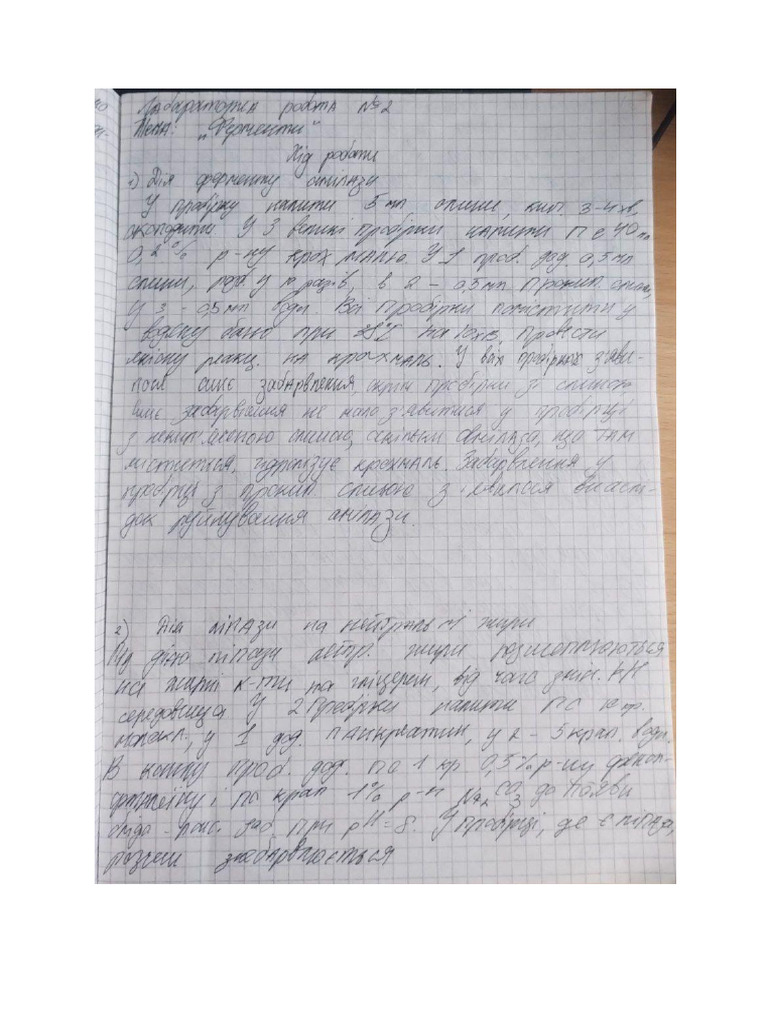 Лабораторна робота №2
Тема: „Ферменти"
Хід робати
1) Дія ферменту амілази
У пробірку налити 5 мл слини, кип. 3-4 хв,
охолодити У 3 великі пробірки налити по 40
0,2% р-ну крохмалю. У 1 проб. дод. 0,5 мл
слини, розб. у 10 разів, в 2 - 0,5 мл прокип. слини,
у 3 - 0,5 мл води. Всі пробірки помістити у
водяну баню при 38°C на 10 хв. Провести
якісну реакц. на крохмаль. У всіх пробірках з'яви-
лося синє забарвлення, окрім пробірки зі слиною
синє забарвлення не мало з'явитися у пробірці
з некип'яченою слиною, оскільки амілаза, що там
міститься, гідролізує крохмаль. Забарвлення у
пробірці з прокип слиною з'явилося внаслі-
док руйнування амілази.
2) Дія ліпази на нейтральні жири
Під дією ліпази нейтр. жири розщеплюються
на жирні к-ти на гліцерин, від чого змін. pH
середовища У 2 пробірки налити по 10 кр.
молока, у 1 дод. панкреатин, у 2 - 5 крап. води.
В кожну проб. дод. по 1 кр. 0,5% р-ну фенол-
фталеїну, і по крап 1% р-н Na₂CO₃ до появи
блідо-рож. заб. при pH = 8. У пробірці, де є ліпаза,
розчин знебарвлюється